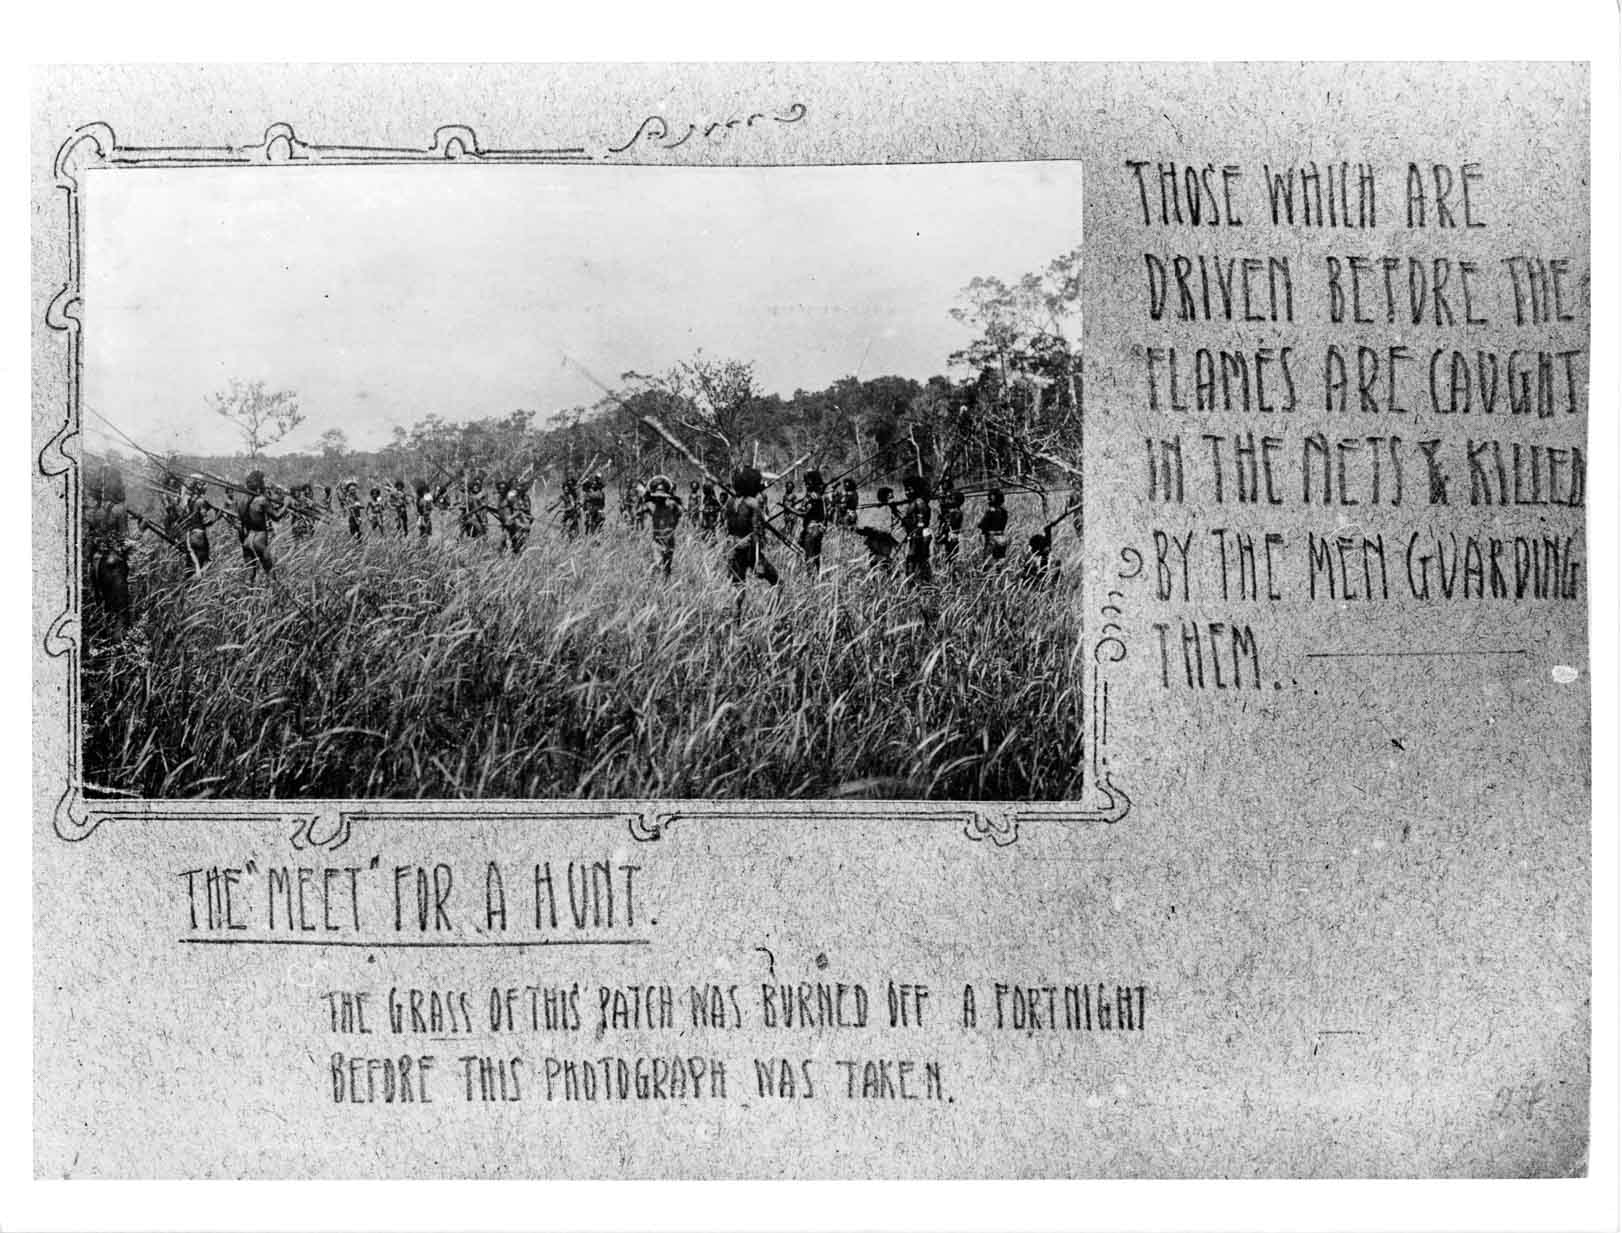 THOSE WHICH ARE
DRIVEN BEFORE THE
FLAMES ARE CAUGHT
IN THE NETS & KILLED
BY THE MEN GUARDING
THEM...
THE "MEET" FOR A HUNT.
THE GRASS OF THIS PATCH WAS BURNED OFF A FORTNIGHT
BEFORE THIS PHOTOGRAPH WAS TAKEN.